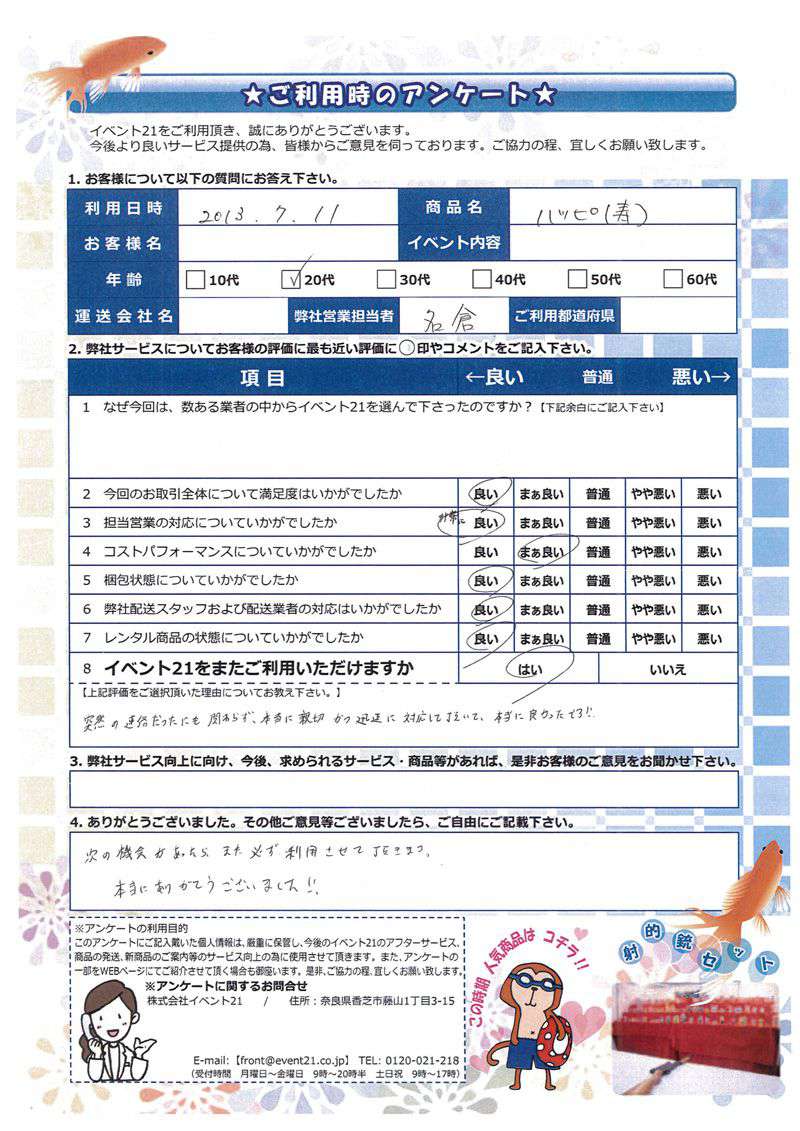 ★ご利用時のアンケート★
イベント21をご利用頂き、誠にありがとうございます。
今後より良いサービス提供の為、皆様からご意見を伺っております。ご協力の程、宜しくお願い致します。
1. お客様について以下の質問にお答え下さい。
利用日時 2013.7.11 商品名 ハッピ(寿)
お客様名 イベント内容
年齢 10代 20代 30代 40代 50代 60代
運送会社名 弊社営業担当者 名倉 ご利用都道府県
2. 弊社サービスについてお客様の評価に最も近い評価に○印やコメントをご記入下さい。
項目 ←良い 普通 悪い→
1 なぜ今回は、数ある業者の中からイベント21を選んで下さったのですか?【下記余白にご記入下さい】
2 今回のお取引全体について満足度はいかがでしたか 良い まぁ良い 普通 やや悪い 悪い
3 担当営業の対応についていかがでしたか 非常に 良い まぁ良い 普通 やや悪い 悪い
4 コストパフォーマンスについていかがでしたか 良い まぁ良い 普通 やや悪い 悪い
5 梱包状態についていかがでしたか 良い まぁ良い 普通 やや悪い 悪い
6 弊社配送スタッフおよび配送業者の対応はいかがでしたか 良い まぁ良い 普通 やや悪い 悪い
7 レンタル商品の状態についていかがでしたか 良い まぁ良い 普通 やや悪い 悪い
8 イベント21をまたご利用いただけますか はい いいえ
【上記評価をご選択頂いた理由についてお教え下さい。】
突然の連絡だったにも関わらず、本当に親切かつ迅速に対応して頂いて、本当に良かったです!!
3. 弊社サービス向上に向け、今後、求められるサービス・商品等があれば、是非お客様のご意見をお聞かせ下さい。
4. ありがとうございました。その他ご意見等ございましたら、ご自由にご記載下さい。
次の機会があったら、また必ず利用させて頂きます。
本当にありがとうございました!!
※アンケートの利用目的
このアンケートにご記入戴いた個人情報は、厳重に保管し、今後のイベント21のアフターサービス、
商品の発送、新商品のご案内等のサービス向上の為に使用させて頂きます。また、アンケートの
一部をWEBページにてご紹介させて頂く場合も御座います。是非、ご協力の程、宜しくお願い致します。
※アンケートに関するお問合せ
株式会社イベント21 / 住所:奈良県香芝市藤山1丁目3-15
E-mail:【front@event21.co.jp】 TEL: 0120-021-218
(受付時間 月曜日~金曜日 9時~20時半 土日祝 9時~17時)
この時期 人気商品は コチラ!!
射的銃セット